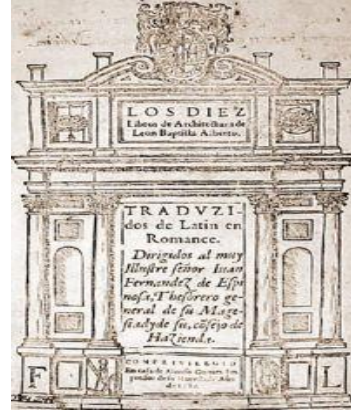 LOS DIEZ
Libros de Architectura de
Leon Baptista Alberto.
TRADVZI-
dos de Latin en
Romance.
Dirigidos al muy
Illustre señor Iuan
Fernandez de Espi
nosa, Thesorero ge-
neral de su Mage-
stad y de su cõsejo de
Hazienda.
CON PRIVILEGIO
En casa de Alonso Gomez
F
L